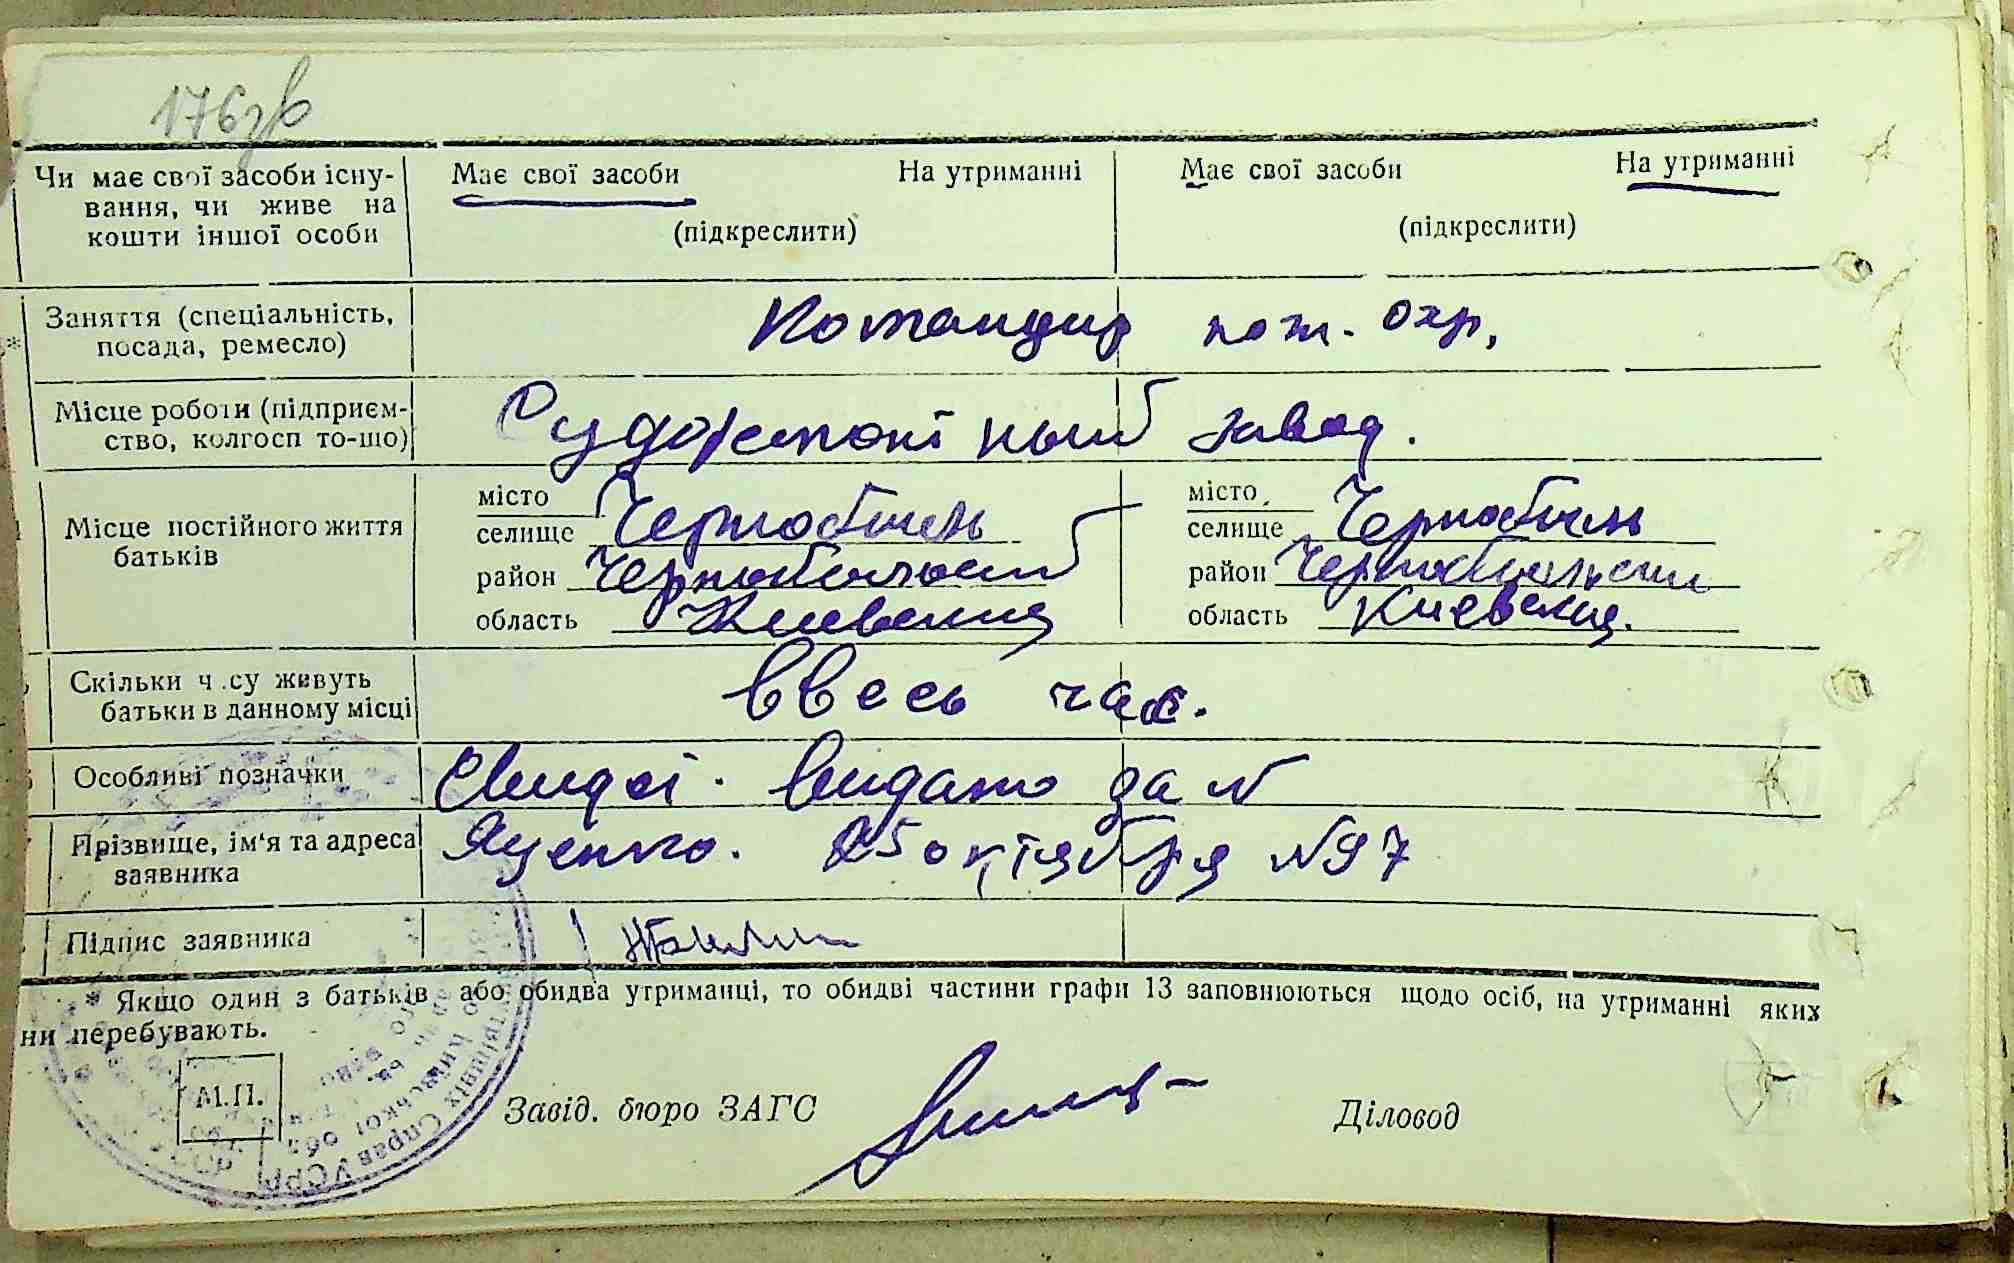 176зв
Чи має свої засоби існу-
вання, чи живе на
кошти іншої особи
Має свої засоби На утриманні
(підкреслити)
Має свої засоби На утриманні
(підкреслити)
Заняття (спеціальність,
посада, ремесло)
Командир пож. охр.
Місце роботи (підприєм-
ство, колгосп то-що)
Судоремонтный завод.
Місце постійного життя
батьків
місто
селище Чернобыль
район Чернобыльский
область Киевская
місто
селище Чернобыль
район Чернобыльский
область Киевская.
Скільки ч су живуть
батьки в данному місці
ввесь час.
Особливі позначки
Свидоі. видано за №
Прізвище, ім'я та адреса
заявника
Яценко. 25 октября №97
Підпис заявника
* Якщо один з батьків або обидва утриманці, то обидві частини графи 13 заповнюються щодо осіб, на утриманні яких
ни перебувають.
М.П.
Завід. бюро ЗАГС
Діловод